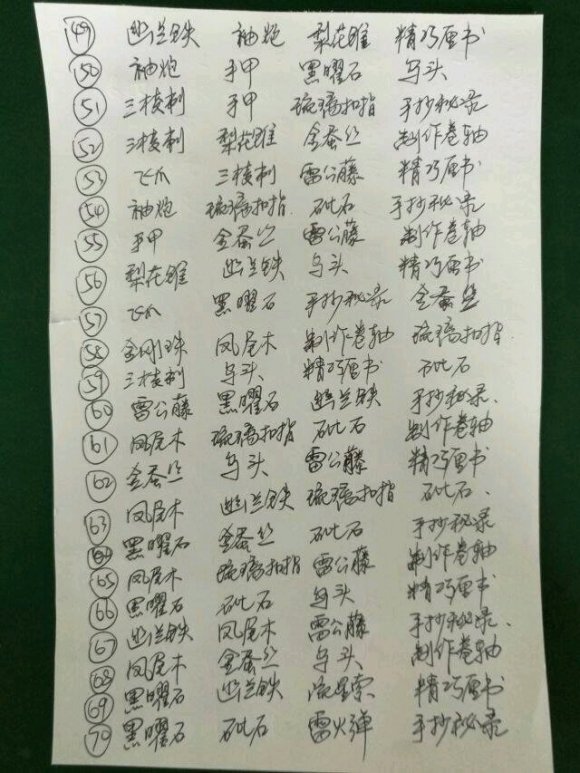 49 幽兰铁 袖炮 梨花锥 精巧匣书
50 袖炮 手甲 黑曜石 乌头
51 三棱刺 手甲 琉璃扣指 手抄秘录
52 三棱刺 梨花锥 金蚕丝 制作卷轴
53 飞爪 三棱刺 雷公藤 精巧匣书
54 袖炮 琉璃扣指 砒石 手抄秘录
55 手甲 金蚕丝 雷公藤 制作卷轴
56 梨花锥 幽兰铁 乌头 精巧匣书
57 飞爪 黑曜石 手抄秘录 金蚕丝
58 金刚铁 凤尾木 制作卷轴 琉璃扣指
59 三棱刺 乌头 精巧匣书 砒石
60 雷公藤 黑曜石 幽兰铁 手抄秘录.
61 凤尾木 琉璃扣指 砒石 制作卷轴
62 金蚕丝 乌头 雷公藤 精巧匣书
63 凤尾木 幽兰铁 琉璃扣指 砒石.
64 黑曜石 金蚕丝 砒石 手抄秘录
65 凤尾木 琉璃扣指 雷公藤 制作卷轴
66 黑曜石 砒石 乌头 精巧匣书
67 幽兰铁 凤尾木 雷公藤 手抄秘录.
68 凤尾木 金蚕丝 乌头 制作卷轴
69 黑曜石 幽兰铁 流星索 精巧匣书
70 黑曜石 砒石 雷火弹 手抄秘录